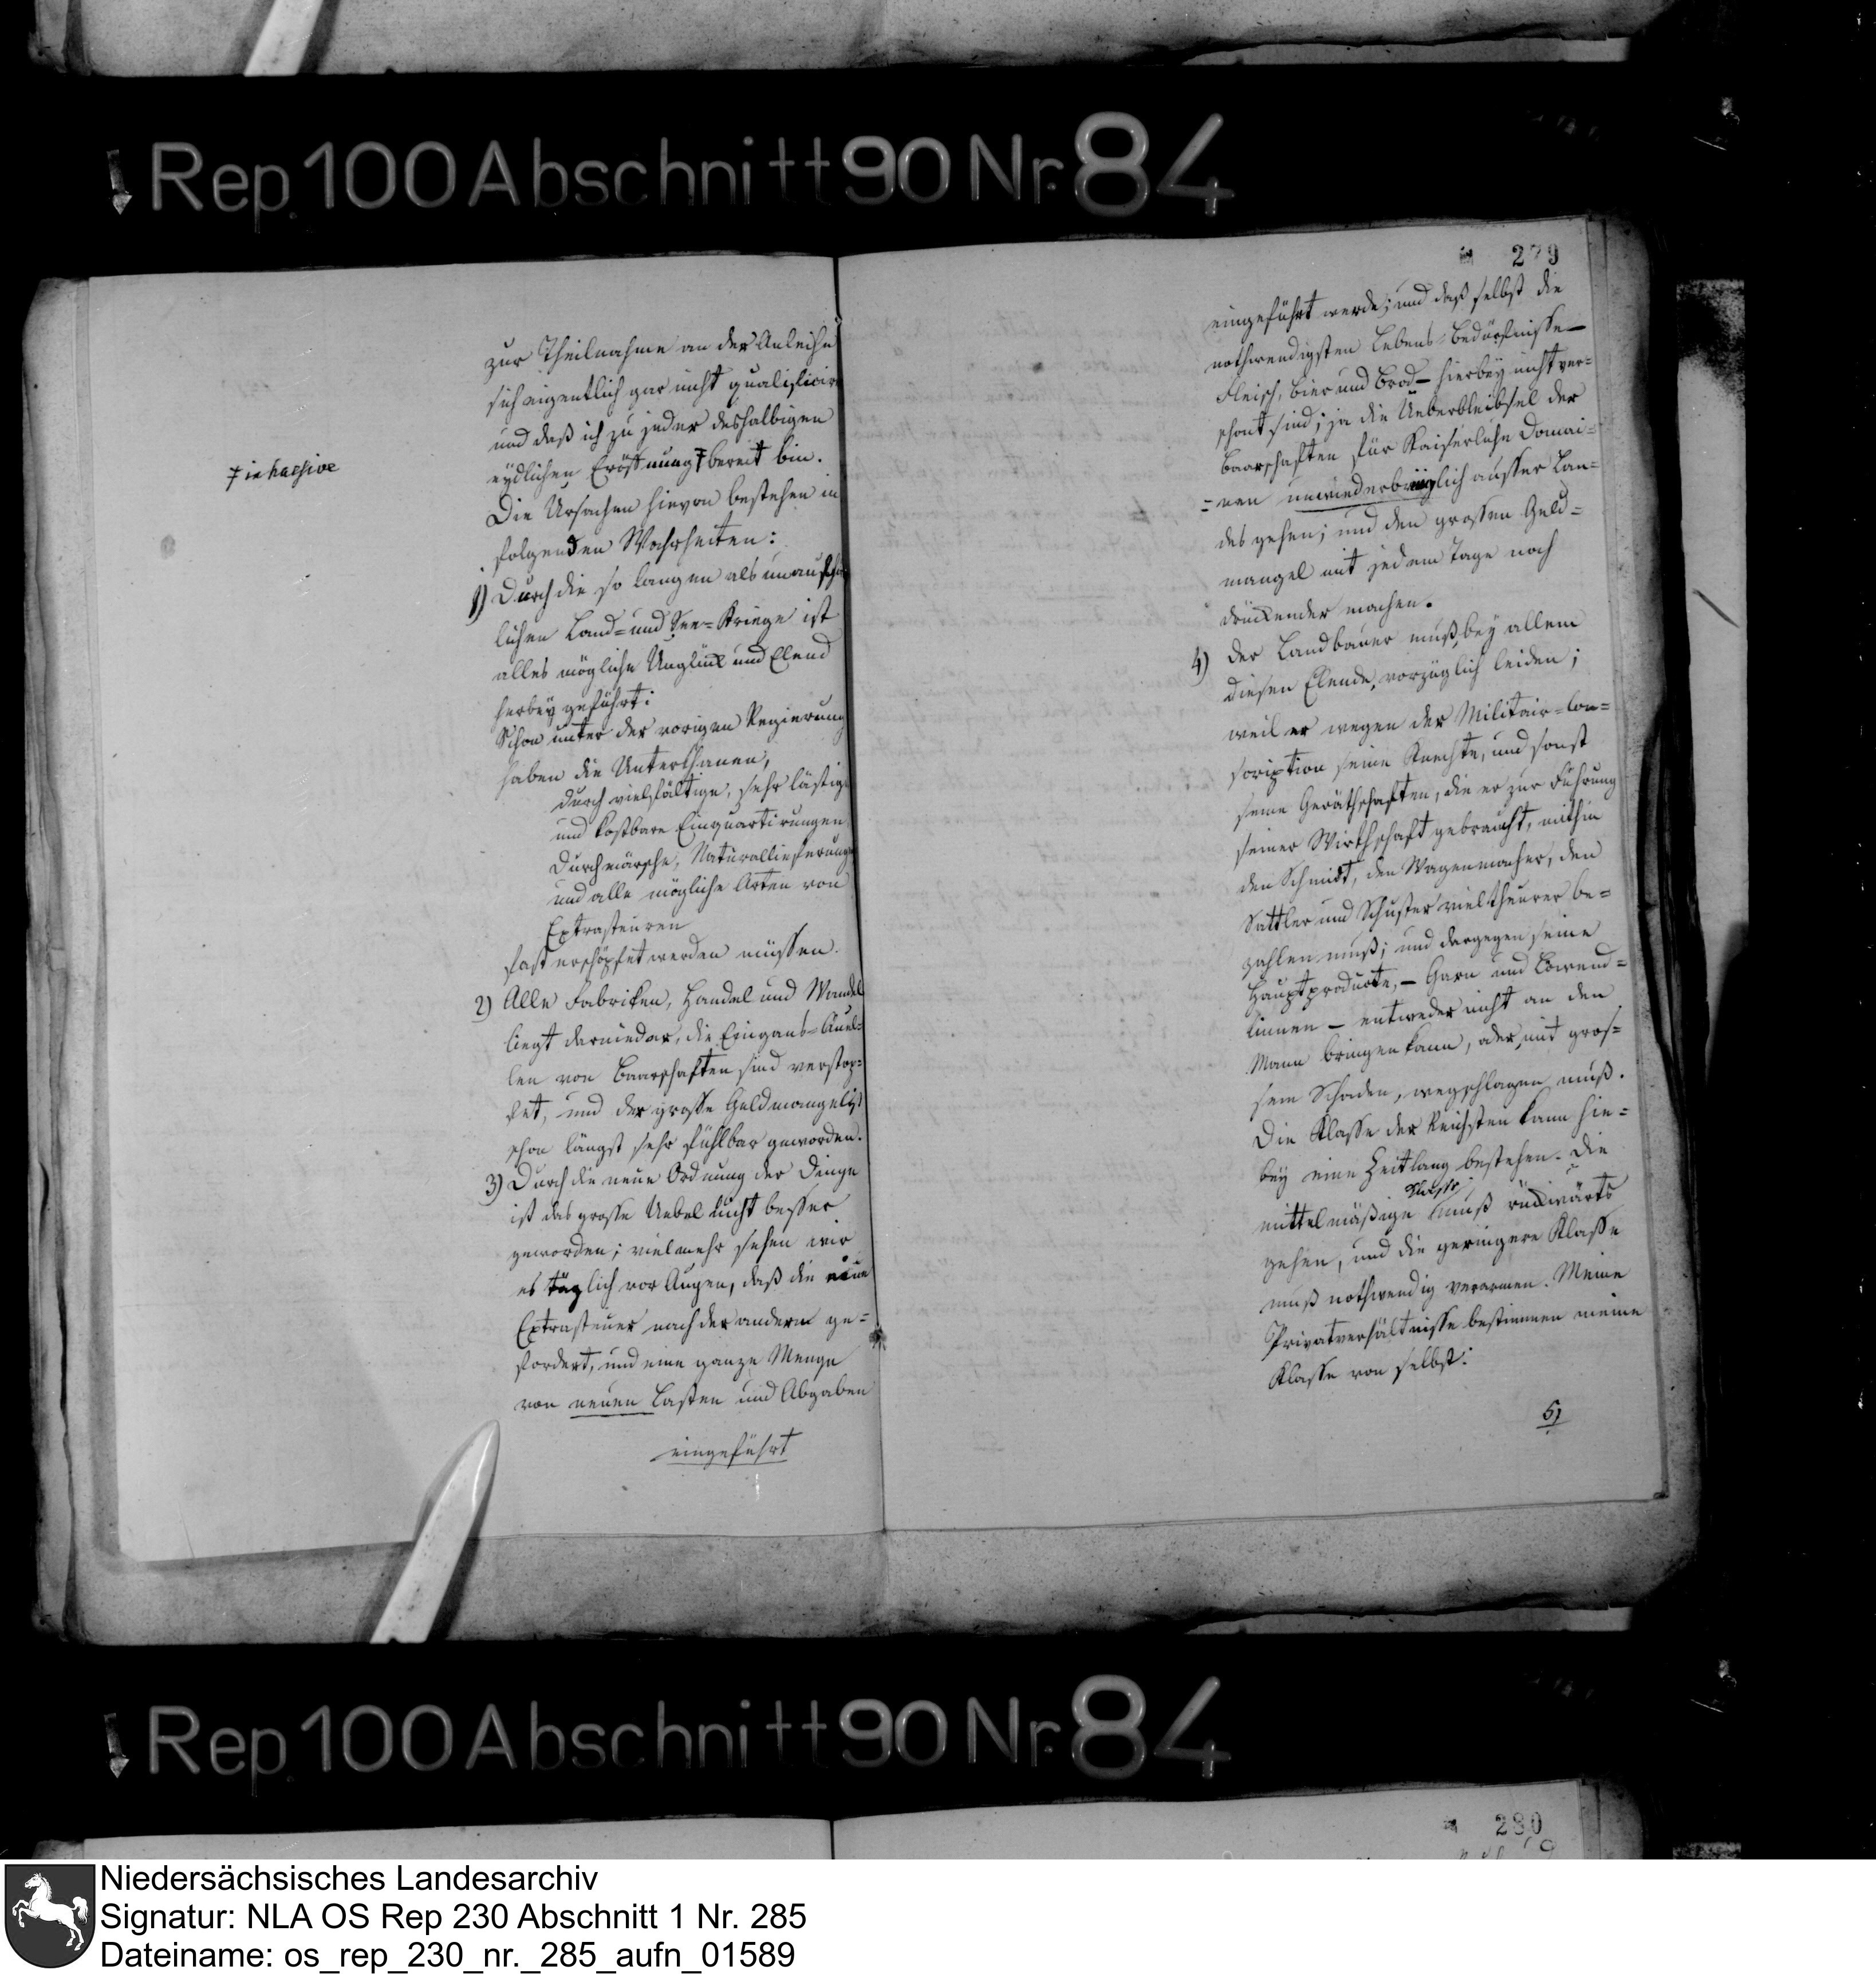 Rep. 100 Abschnitt 90 Nr. 84
zur Theilnahme an der Anleihe
sich eigentlich gar nicht qualificire
und daß ich zu jeder deshalbigen
eydlichen Eröffnung ⨍ bereit bin.
⨍ in hac sive
Die Ursachen hievon bestehen in
folgenden Wahrheiten:
1) Durch die so langen als unaufhör
lichen Land= und See=Kriege ist
alles mögliche Unglück und Elend
herbey geführt:
Schon unter der vorigen Regierung
haben die Unterthanen,
durch vielfältige, sehr lästige
und kostbare Einquartirungen
Durchmärsche, Naturallieferungen
und alle mögliche Arten von
Extrasteuren
fast erschöpfet werden müssen.
2) Alle Fabriken, Handel und Wandel
liegt darnieder, die Eingans=Quel=
len von Baarschaften sind verstop=
fet, und der grosse Geldmangel ist
schon längst sehr fühlbar geworden.
3) Durch die neue Ordnung der Dinge
ist das grosse Uebel nicht besser
geworden; vielmehr sehen wir
es täglich vor Augen, daß die eine
Extrasteuer nach der andern ge=
fordert, und eine ganze Menge
von neuen Lasten und Abgaben
eingeführt
279
eingeführt werde; und daß selbst die
nothwendigsten Lebens=Bedürfnisse —
Fleisch, Bier und Brod — hierbey nicht ver=
schont sind; ja die Ueberbleibsel der
Baarschaften für Kaiserliche Domai=
=nen unwiederbringlich ausser Lan=
des gehen; und den grossen Geld=
mangel mit jedem Tage noch
drückender machen.
4) Der Landbauer muß, bey allem
diesen Elende, vorzüglich leiden;
weil er wegen der Militair=Con=
scription seine Knechte, und sonst
seine Geräthschaften, die er zur Führung
seiner Wirthschaft gebraucht, mithin
den Schmidt, den Wagenmacher, den
Sattler und Schuster viel theurer be=
zahlen muß; und dargegen seine
Hauptproducte, — Garn und Löwend=
linnen — entweder nicht an den
Mann bringen kann, oder, mit gros=
sem Schaden, wegschlagen muß.
Die Klasse der Reichsten kann hie=
bey eine Zeitlang bestehen. Die
mittelmäßige Klasse muß rückwärts
gehen, und die geringere Klasse
muß nothwendig verarmen. Meine
Privatverhältnisse bestimmen meine
Klasse von selbst.
5)
Rep. 100 Abschnitt 90 Nr. 84
280
Niedersächsisches Landesarchiv
Signatur: NLA OS Rep 230 Abschnitt 1 Nr. 285
Dateiname: os_rep_230_nr._285_aufn_01589